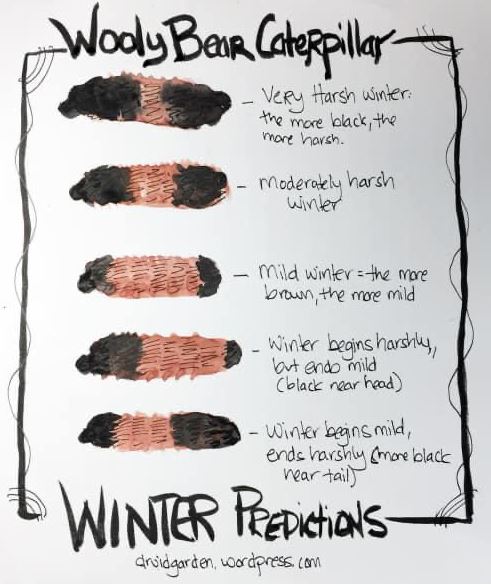 Wooly Bear Caterpillar
— Very Harsh winter:
the more black, the
more harsh.
— moderately harsh
winter
— mild winter = the more
brown, the more mild
— Winter begins harshly,
but ends mild
(black near head)
— Winter begins mild,
ends harshly (more black
near tail)
WINTER PREDICTIONS
druidgarden.wordpress.com